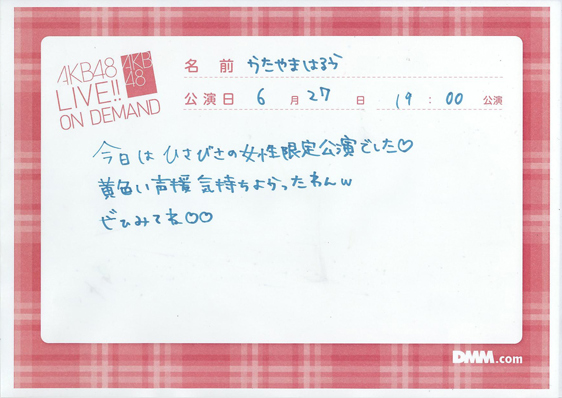 AKB48
LIVE!!
ON DEMAND
AKB
48
名前 かたやまはるか
公演日 6月27日 19:00 公演
今日は ひさびさの女性限定公演でした♡
黄色い声援 気持ちよかったわんw
ぜひみてね♡♡
DMM.com